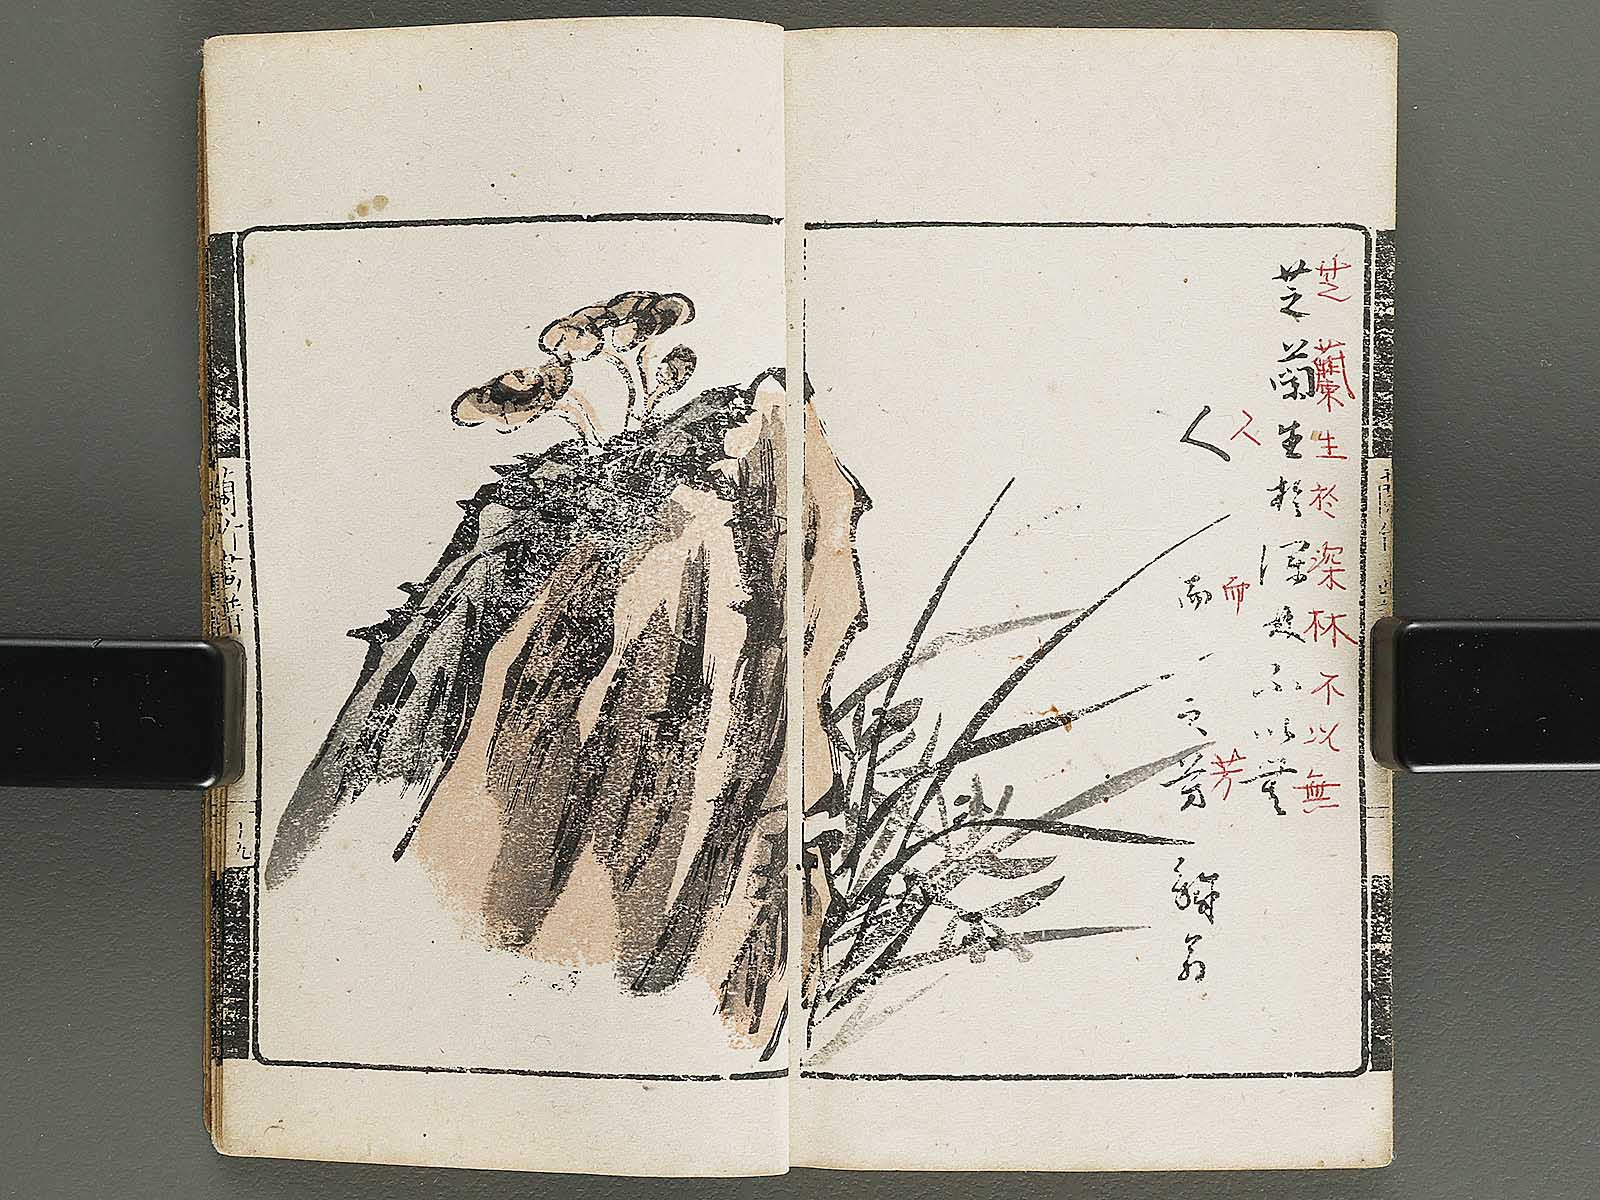 芝蘭生於深林不以無
芝蘭生於深林不以無
人而芳
人而不芳
翁
蘭竹畫譜
十九